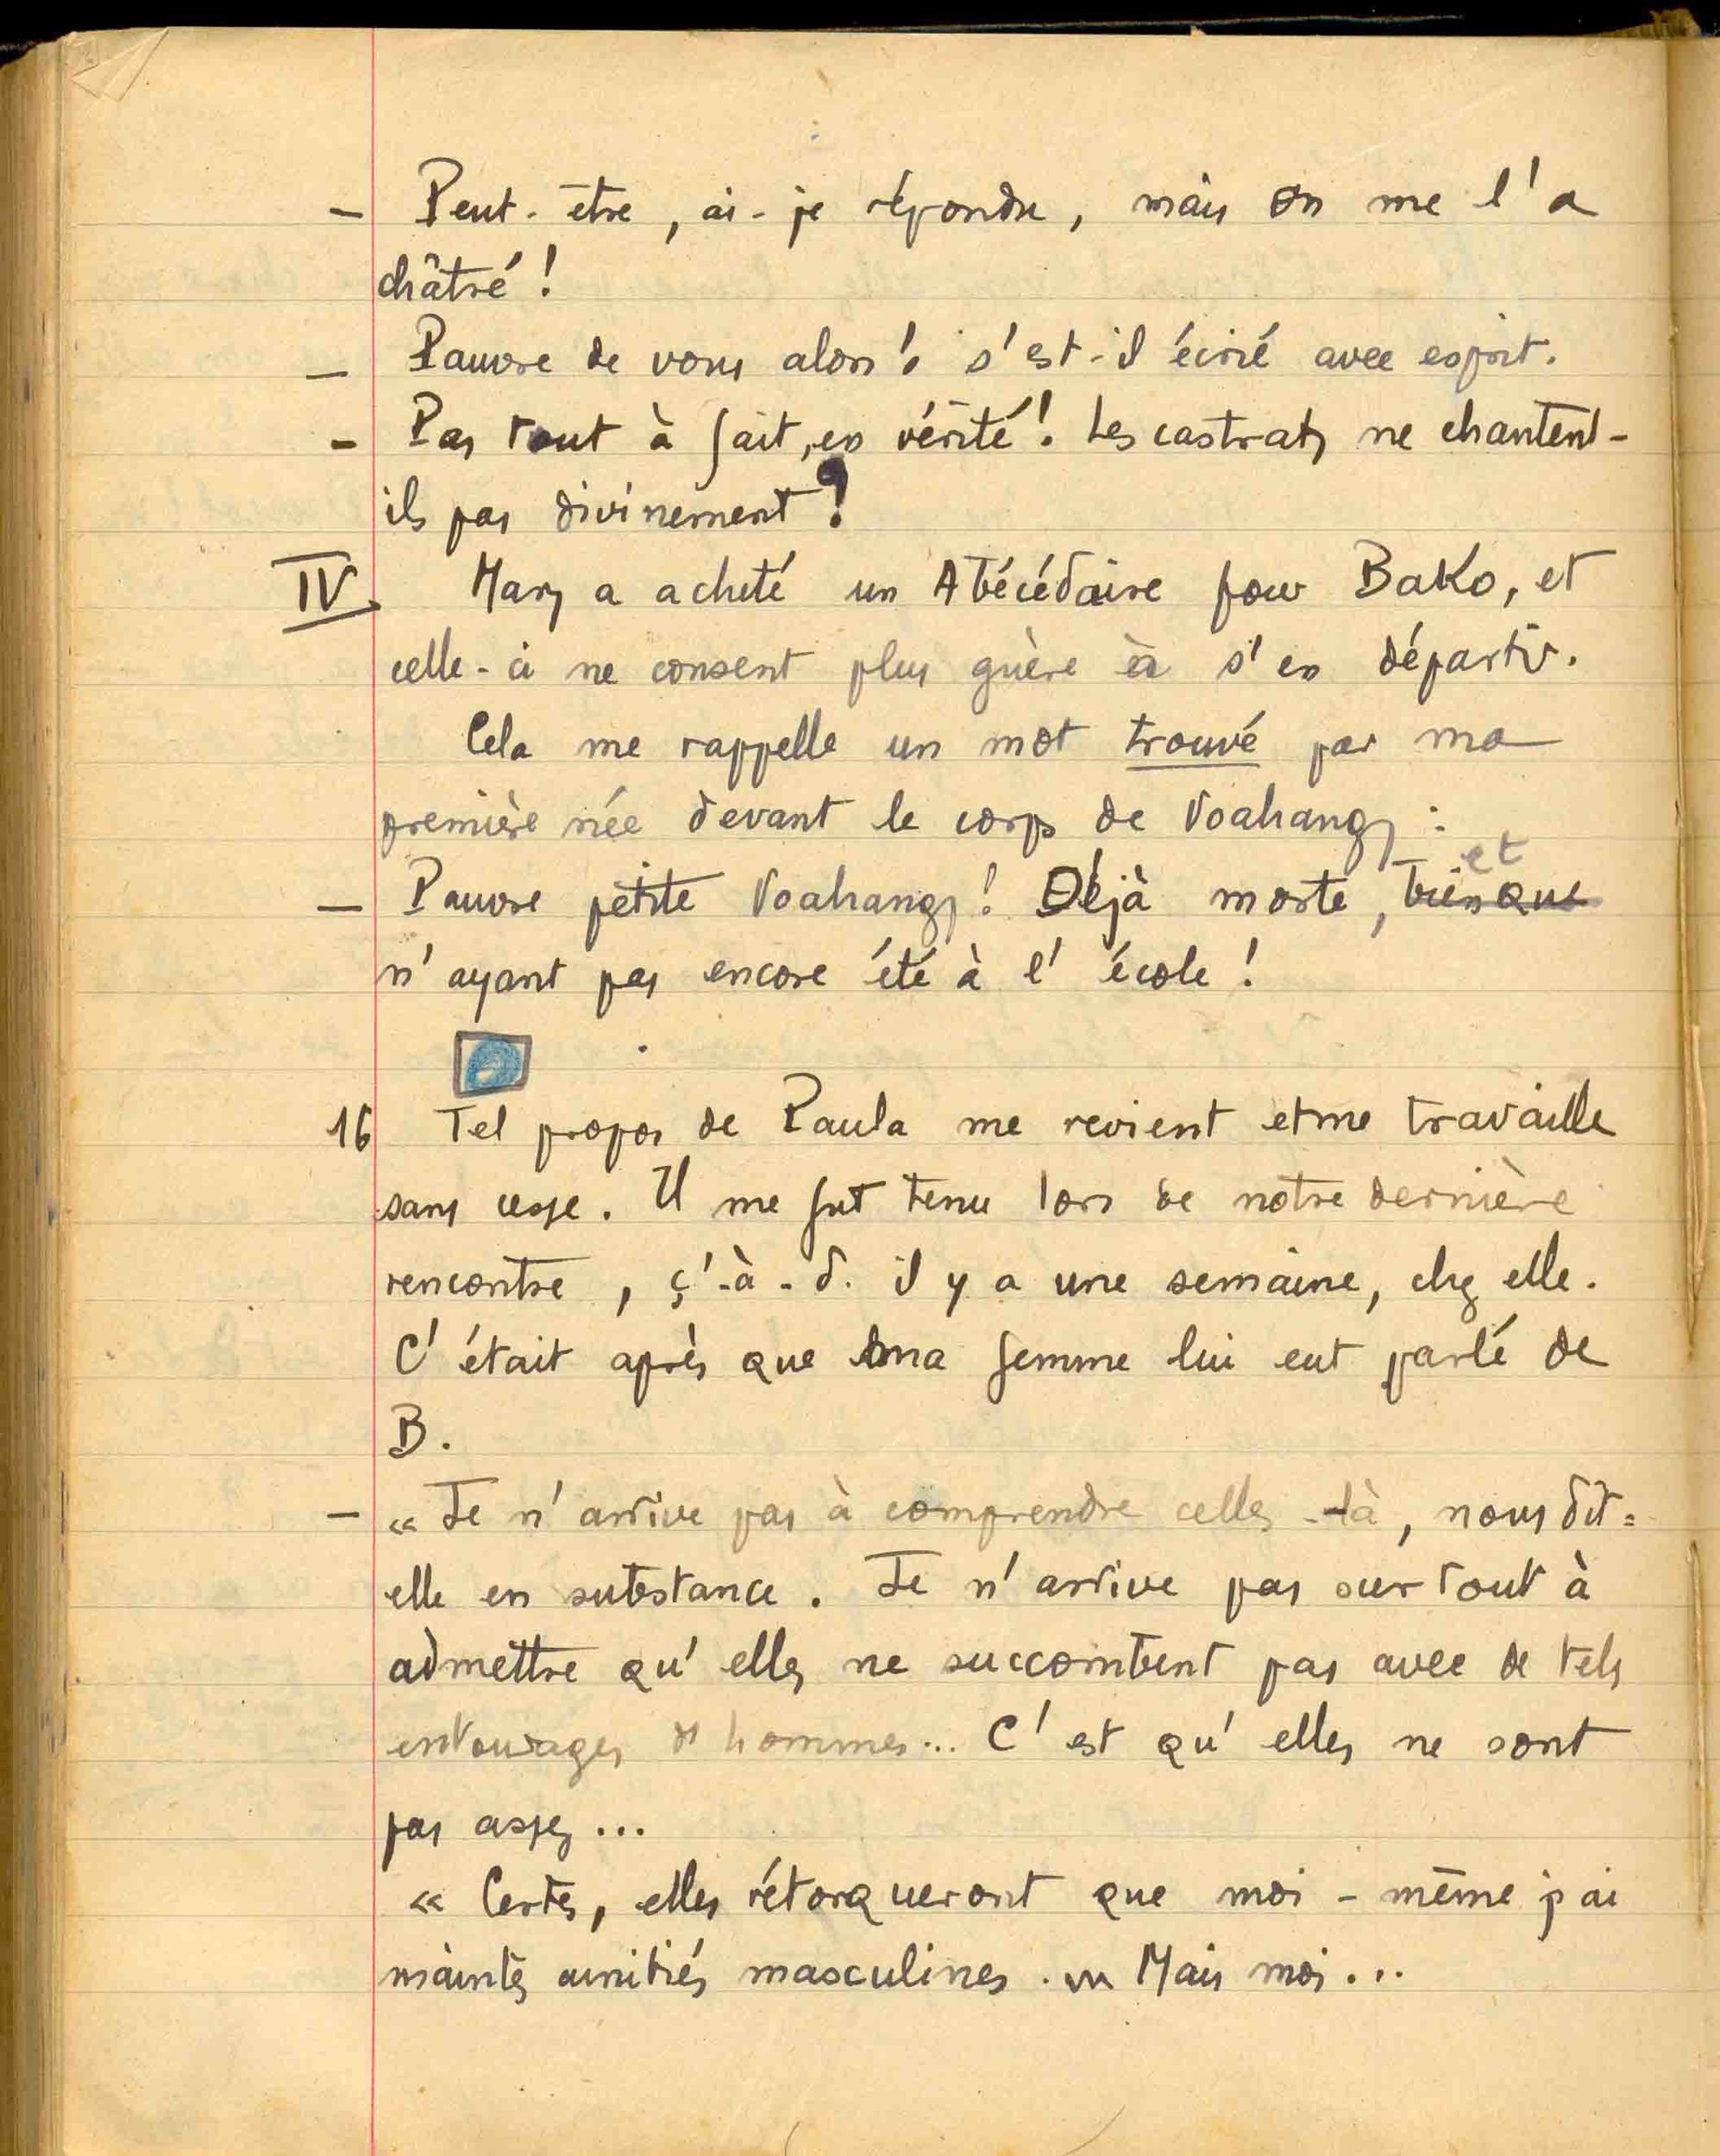 — Peut-être, ai-je répondu, mais on me l'a
châtré !
— Pauvre de vous alors ! s'est-il écrié avec esprit.
— Pas tout à fait, en vérité ! Les castrats ne chantent-
ils pas divinement ?
IV. Mary a acheté un Abécédaire pour Bako, et
celle-ci ne consent plus guère à s'en départir.
Cela me rappelle un mot trouvé par ma
première née devant le corps de Voahangy :
et
— Pauvre petite Voahangy ! Déjà morte, bien que
n'ayant pas encore été à l'école !
16 Tel propos de Paula me revient et me travaille
sans cesse. Il me fut tenu lors de notre dernière
rencontre, ç'-à-d. il y a une semaine, chez elle.
C'était après que ma femme lui eut parlé de
B.
— « Je n'arrive pas à comprendre celles-là, nous dit-
elle en substance. Je n'arrive pas surtout à
admettre qu'elles ne succombent pas avec de tels
entourages d'hommes... C'est qu'elles ne sont
pas assez...
« Certes, elles rétorqueront que moi-même j'ai
maintes amitiés masculines. Mais moi...